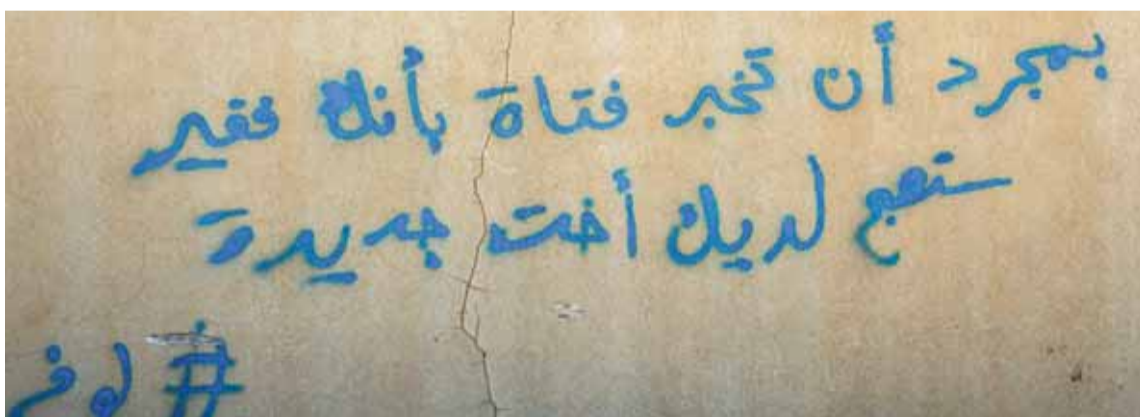 بمجرد أن تخبر فتاة بأنك فقير
ستصبح لديك أخت جديدة
# لوفر